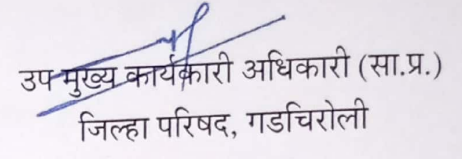 उप मुख्य कार्यकारी अधिकारी (सा.प्र.)
जिल्हा परिषद, गडचिरोली